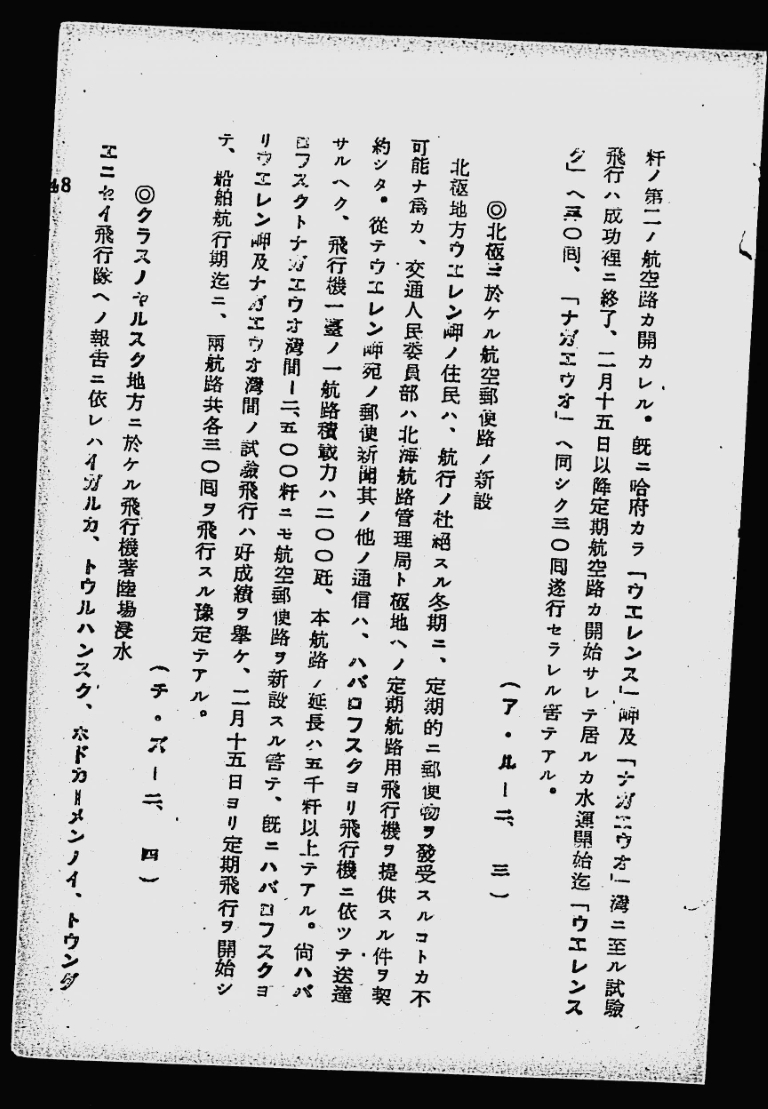 粁ノ第二ノ航空路カ開カレル。旣ニ哈府カラ「ウエレンス」岬及「ナガエウオ」灣ニ至ル試驗
飛行ハ成功裡ニ終了、二月十五日以降定期航空路カ開始サレテ居ルカ水運開始迄「ウエレンス
ク」ヘ三〇囘、「ナガエウオ」ヘ同シク三〇囘遂行セラレル筈テアル。
(ア・ル―二、三)
◎北極ニ於ケル航空郵便路ノ新設
北極地方ウエレン岬ノ住民ハ、航行ノ杜絕スル冬期ニ、定期的ニ郵便物ヲ發受スルコトカ不
可能ナ爲カ、交通人民委員部ハ北海航路管理局ト極地ヘノ定期航路用飛行機ヲ提供スル件ヲ契
約シタ。從テウエレン岬宛ノ郵便新聞其ノ他ノ通信ハ、ハバロフスクヨリ飛行機ニ依ツテ送達
サルヘク、飛行機一臺ノ一航路積載力ハ二〇〇瓩、本航路ノ延長ハ五千粁以上テアル。尙ハバ
ロフスクトナガエウオ灣間―二、五〇〇粁ニモ航空郵便路ヲ新設スル筈テ、旣ニハバロフスクヨ
リウエレン岬及ナガエウオ灣間ノ試驗飛行ハ好成績ヲ擧ケ、二月十五日ヨリ定期飛行ヲ開始シ
テ、船舶航行期迄ニ、兩航路共各三〇囘ヲ飛行スル豫定テアル。
(チ・ズ―二、四)
◎クラスノヤルスク地方ニ於ケル飛行機著陸場浸水
エニセイ飛行隊ヘノ報吿ニ依レハイガルカ、トウルハンスク、ポドカーメンノイ、トウンダ
48